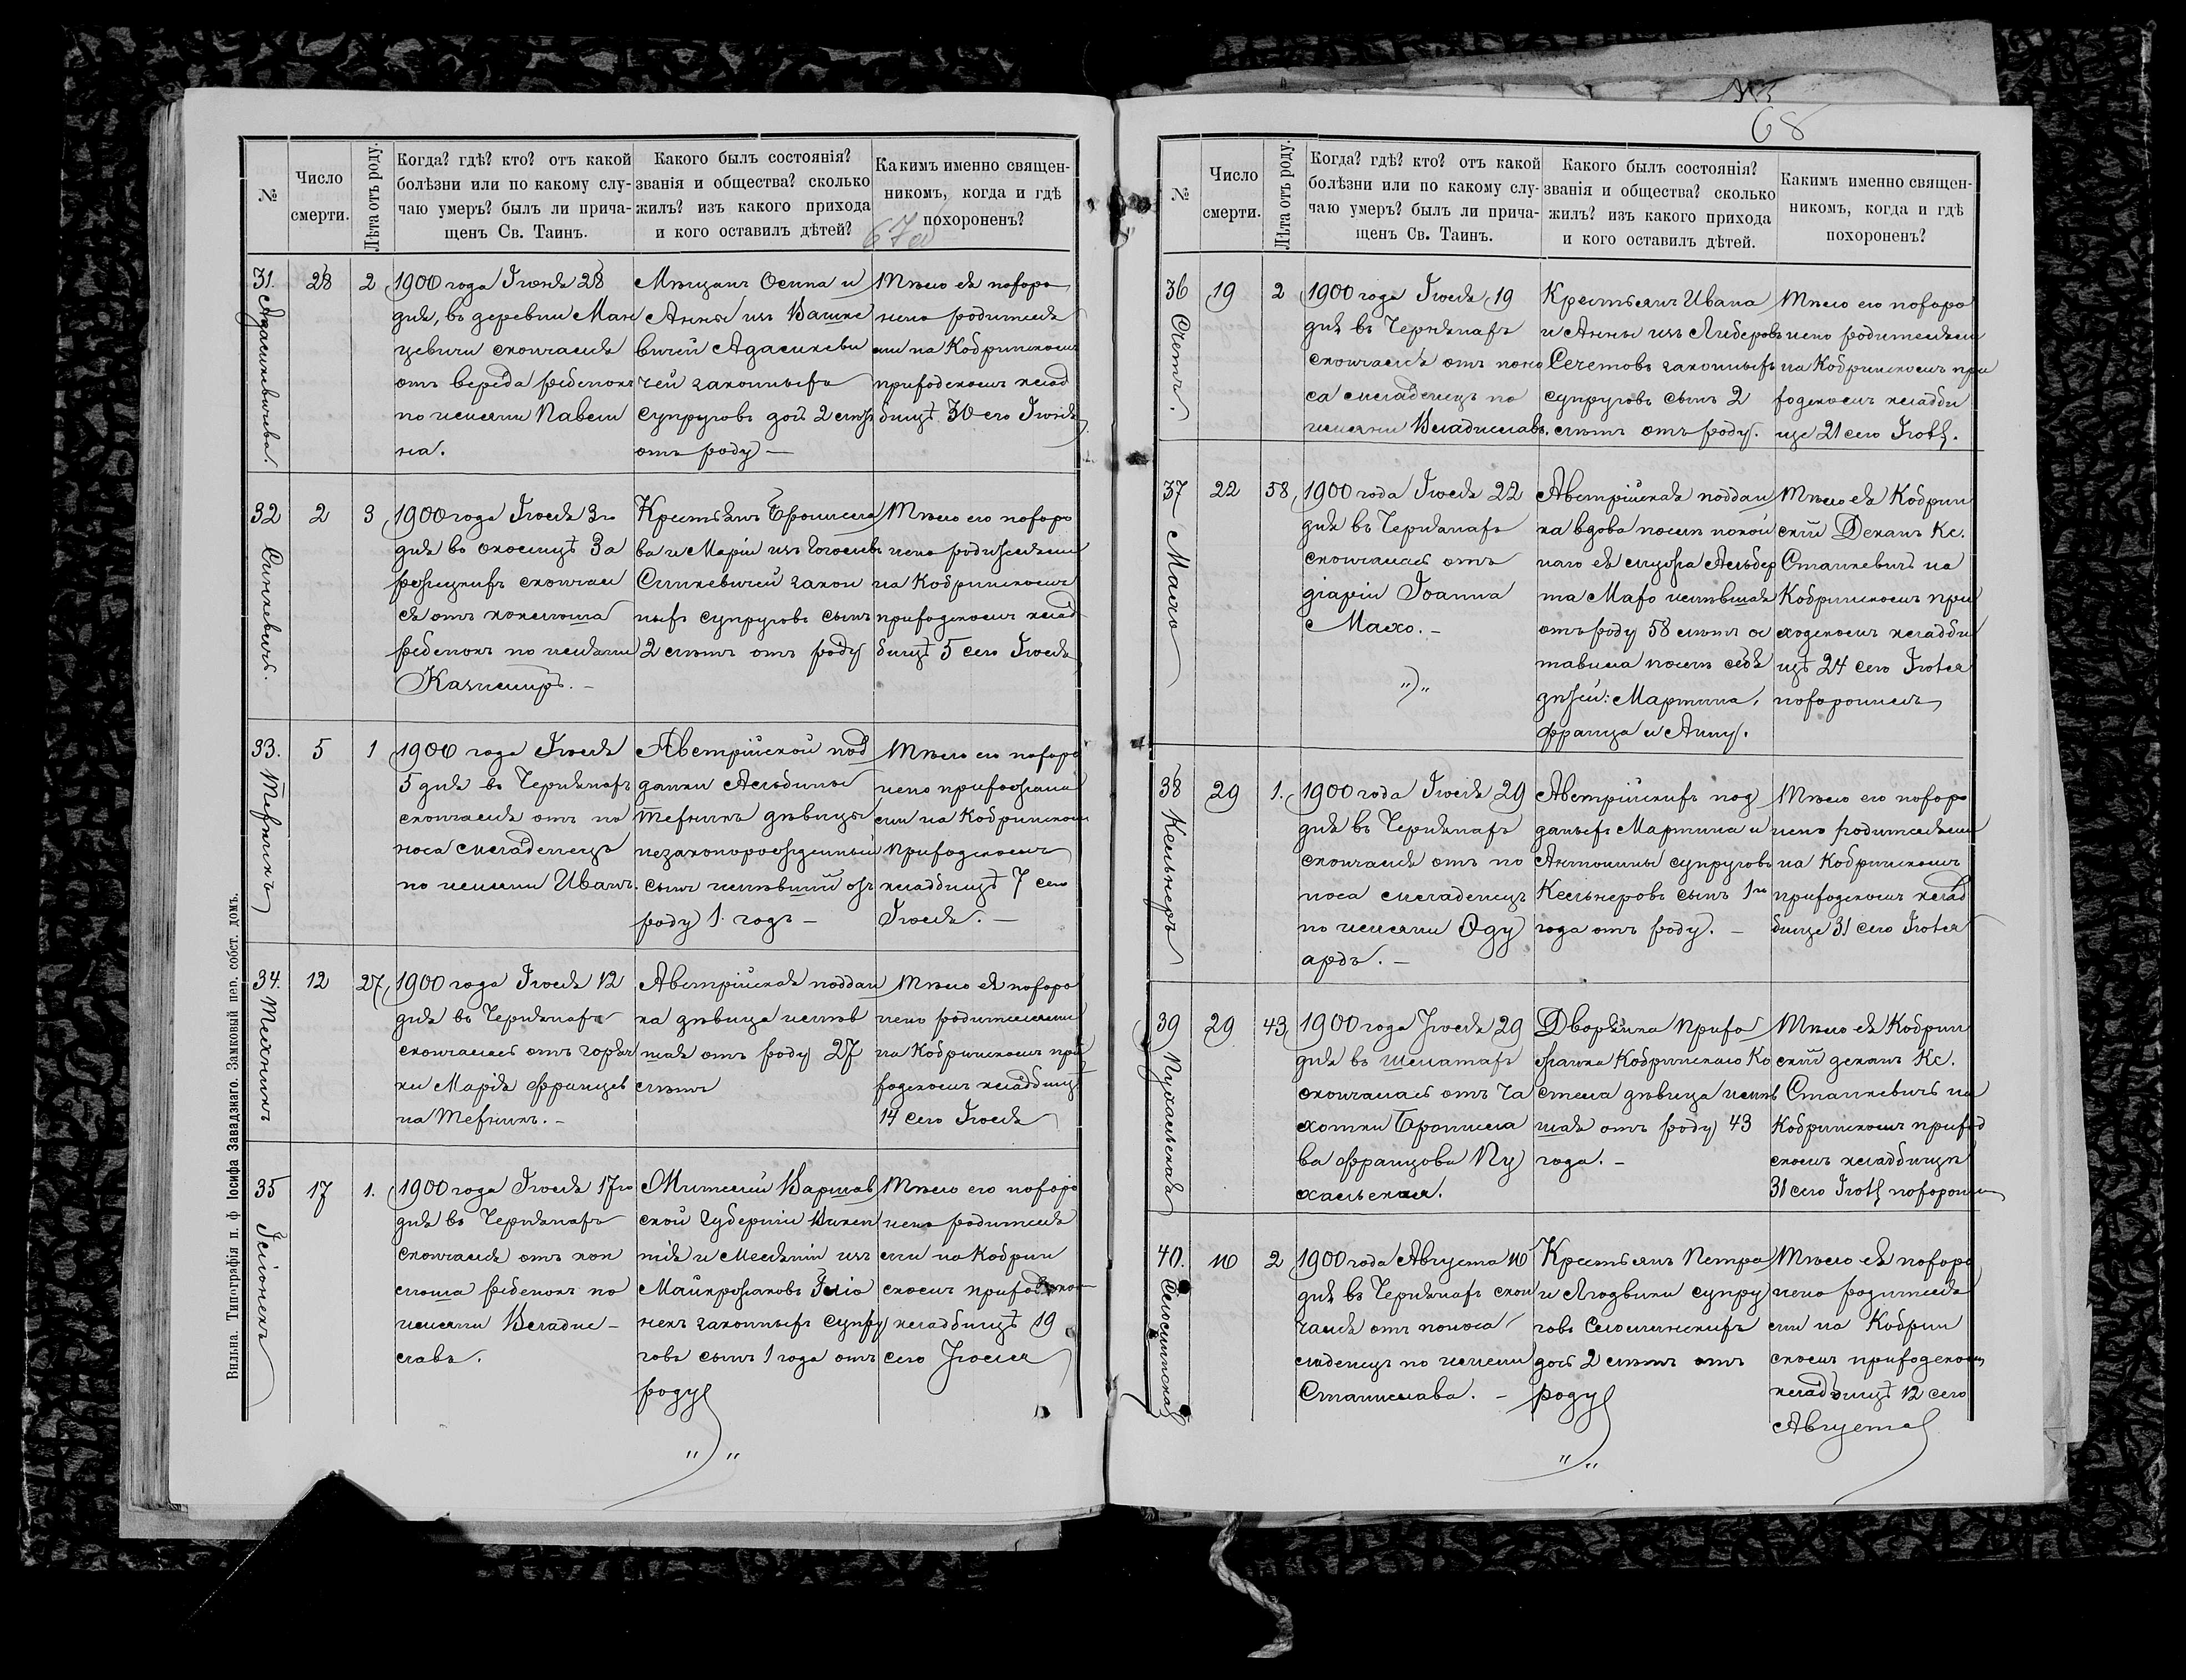 67об
№
Число
смерти.
Лѣта отъ роду.
Когда? гдѣ? кто? отъ какой
болѣзни или по какому слу-
чаю умеръ? былъ ли прича-
щенъ Св. Таинъ.
Какого былъ состоянія?
званія и общества? сколько
жилъ? изъ какого прихода
и кого оставилъ дѣтей?
Какимъ именно священ-
никомъ, когда и гдѣ
похороненъ?
31.
28
2
1900 года Іюня 28
дня, въ деревни Ман
цевичи скончался
отъ вереда ребенокъ
по имени Павели
на.
Мѣщанъ Осипа и
Анны изъ Вашке
вичей Адаськеви
чей законныхъ
супруговъ доч 2 лѣтъ
отъ роду —
Тѣло ея похоро
нено родителя
ми на Кобринскомъ
приходскомъ клад
бищѣ 30 сего Іюня
32
Синкевичъ.
2
3
1900 года Іюля 3го
дня во околицѣ За
рѣчицкихъ скончал
ся отъ коклюша
ребенокъ по имени
Казимиръ. –
Крестьянъ Бронисла
ва и Маріи изъ
Синкевичей закон
ныхъ супруговъ сынъ
2 лѣтъ отъ роду
Тѣло его похоро
нено родителями
на Кобринскомъ
приходскомъ клад
бищѣ 5 сего Іюля
33.
Техникъ
5
1
1900 года Іюля
5 дня въ Чернянахъ
скончался отъ по
носа младенецъ
по имени Иванъ.
Австрійской под
данки Альбины
Техникъ дѣвицы
незаконорожденный
сынъ имѣвшій отъ
роду 1. годъ –
Тѣло его похоро
нено прихожана
ми на Кобринском
приходскомъ
кладбищѣ 7 сего
Іюля. —
34.
Техникъ
12
27
1900 года Іюля 12
дня въ Чернянахъ
скончалась отъ горяч
ки Марія Францов
на Техникъ. –
Австрійская поддан
ка дѣвица имѣв
шая отъ роду 27
лѣтъ
Тѣло ея похоро
нено родителями
на Кобринскомъ при
ходскомъ кладбищѣ
14 сего Іюля
35
Геліонекъ
17
1.
1900 года Іюля 17го
дня въ Чернянахъ
скончался отъ кок
люша ребенокъ по
имени Владис –
лавъ.
Жителей Варшав
ской губерніи Викен
тія и Меляніи изъ
Майкрожаковъ Геліо
некъ законныхъ супру
говъ сынъ 1 года отъ
роду
Тѣло его похоро
нено родителя
ми на Кобрин
скомъ приходском
кладбищѣ 19
сего Іюля
Вильна. Типографія п. ф. Іосифа Завадзкаго. Замковый пер. собст. домъ.
68
№
Число
смерти.
Лѣта отъ роду.
Когда? гдѣ? кто? отъ какой
болѣзни или по какому слу-
чаю умеръ? былъ ли прича-
щенъ Св. Таинъ.
Какого былъ состоянія?
званія и общества? сколько
жилъ? изъ какого прихода
и кого оставилъ дѣтей.
Какимъ именно священ-
никомъ, когда и гдѣ
похороненъ?
36
19
2
1900 года Іюля 19
дня въ Чернянахъ
скончался отъ поно
са младенецъ по
имени Владиславъ.
Крестьянъ Ивана
и Анны изъ Лидеровъ
законныхъ
супруговъ сынъ 2
лѣтъ отъ роду.
Тѣло его похоро
нено родителями
на Кобринскомъ при
ходскомъ кладби
ще 21 сего Іюля.
37
Махо
22
58
1900 года Іюля 22
дня въ Чернянахъ
скончалась отъ
діаріи Іоанна
Махо. –
Австрійская поддан
ка вдова послѣ покой
наго ея мужа Альбер
та Махо имѣвшая
отъ роду 58 лѣтъ ос
тавила послѣ себя
дѣтей: Мартина,
Франца и Анну.
Тѣло ея Кобрин
скій Деканъ Кс.
Станкевичъ на
Кобринскомъ при
ходскомъ кладби
щѣ 24 сего Іюля
похоронилъ
38
Кельнеръ
29
1.
1900 года Іюля 29
дня въ Чернянахъ
скончался отъ по
носа младенецъ
по имени Эду
ардъ. –
Австрійскихъ под
даныхъ Мартина и
Антонины супруговъ
Кельнеровъ сынъ 1го
года отъ роду. –
Тѣло его похоро
нено родителями
на Кобринскомъ
приходскомъ клад
бище 31 сего Іюля
39
Пухальская
29
43
1900 года Іюля 29
дня въ Шематахъ
скончалась отъ ча
хотки Бронисла
ва Францова Пу
хальская.
Дворянка прихо
жанка Кобринскаго Ко
стела дѣвица имѣв
шая отъ роду 43
года. –
Тѣло ея Кобрин
скій деканъ Кс.
Станкевичъ на
Кобринскомъ приход
скомъ кладбищѣ
31 сего Іюля похоронил
40.
10
2
1900 года Августа 10
дня въ Чернянахъ скон
чался отъ поноса
младенецъ по имени
Станислава. –
Крестьянъ Петра
и Людвики супру
говъ
дочь 2 лѣтъ отъ
роду
Тѣло ея похоро
нено родителя
ми на Кобрин
скомъ приходском
кладбищѣ 12 сего
Августа